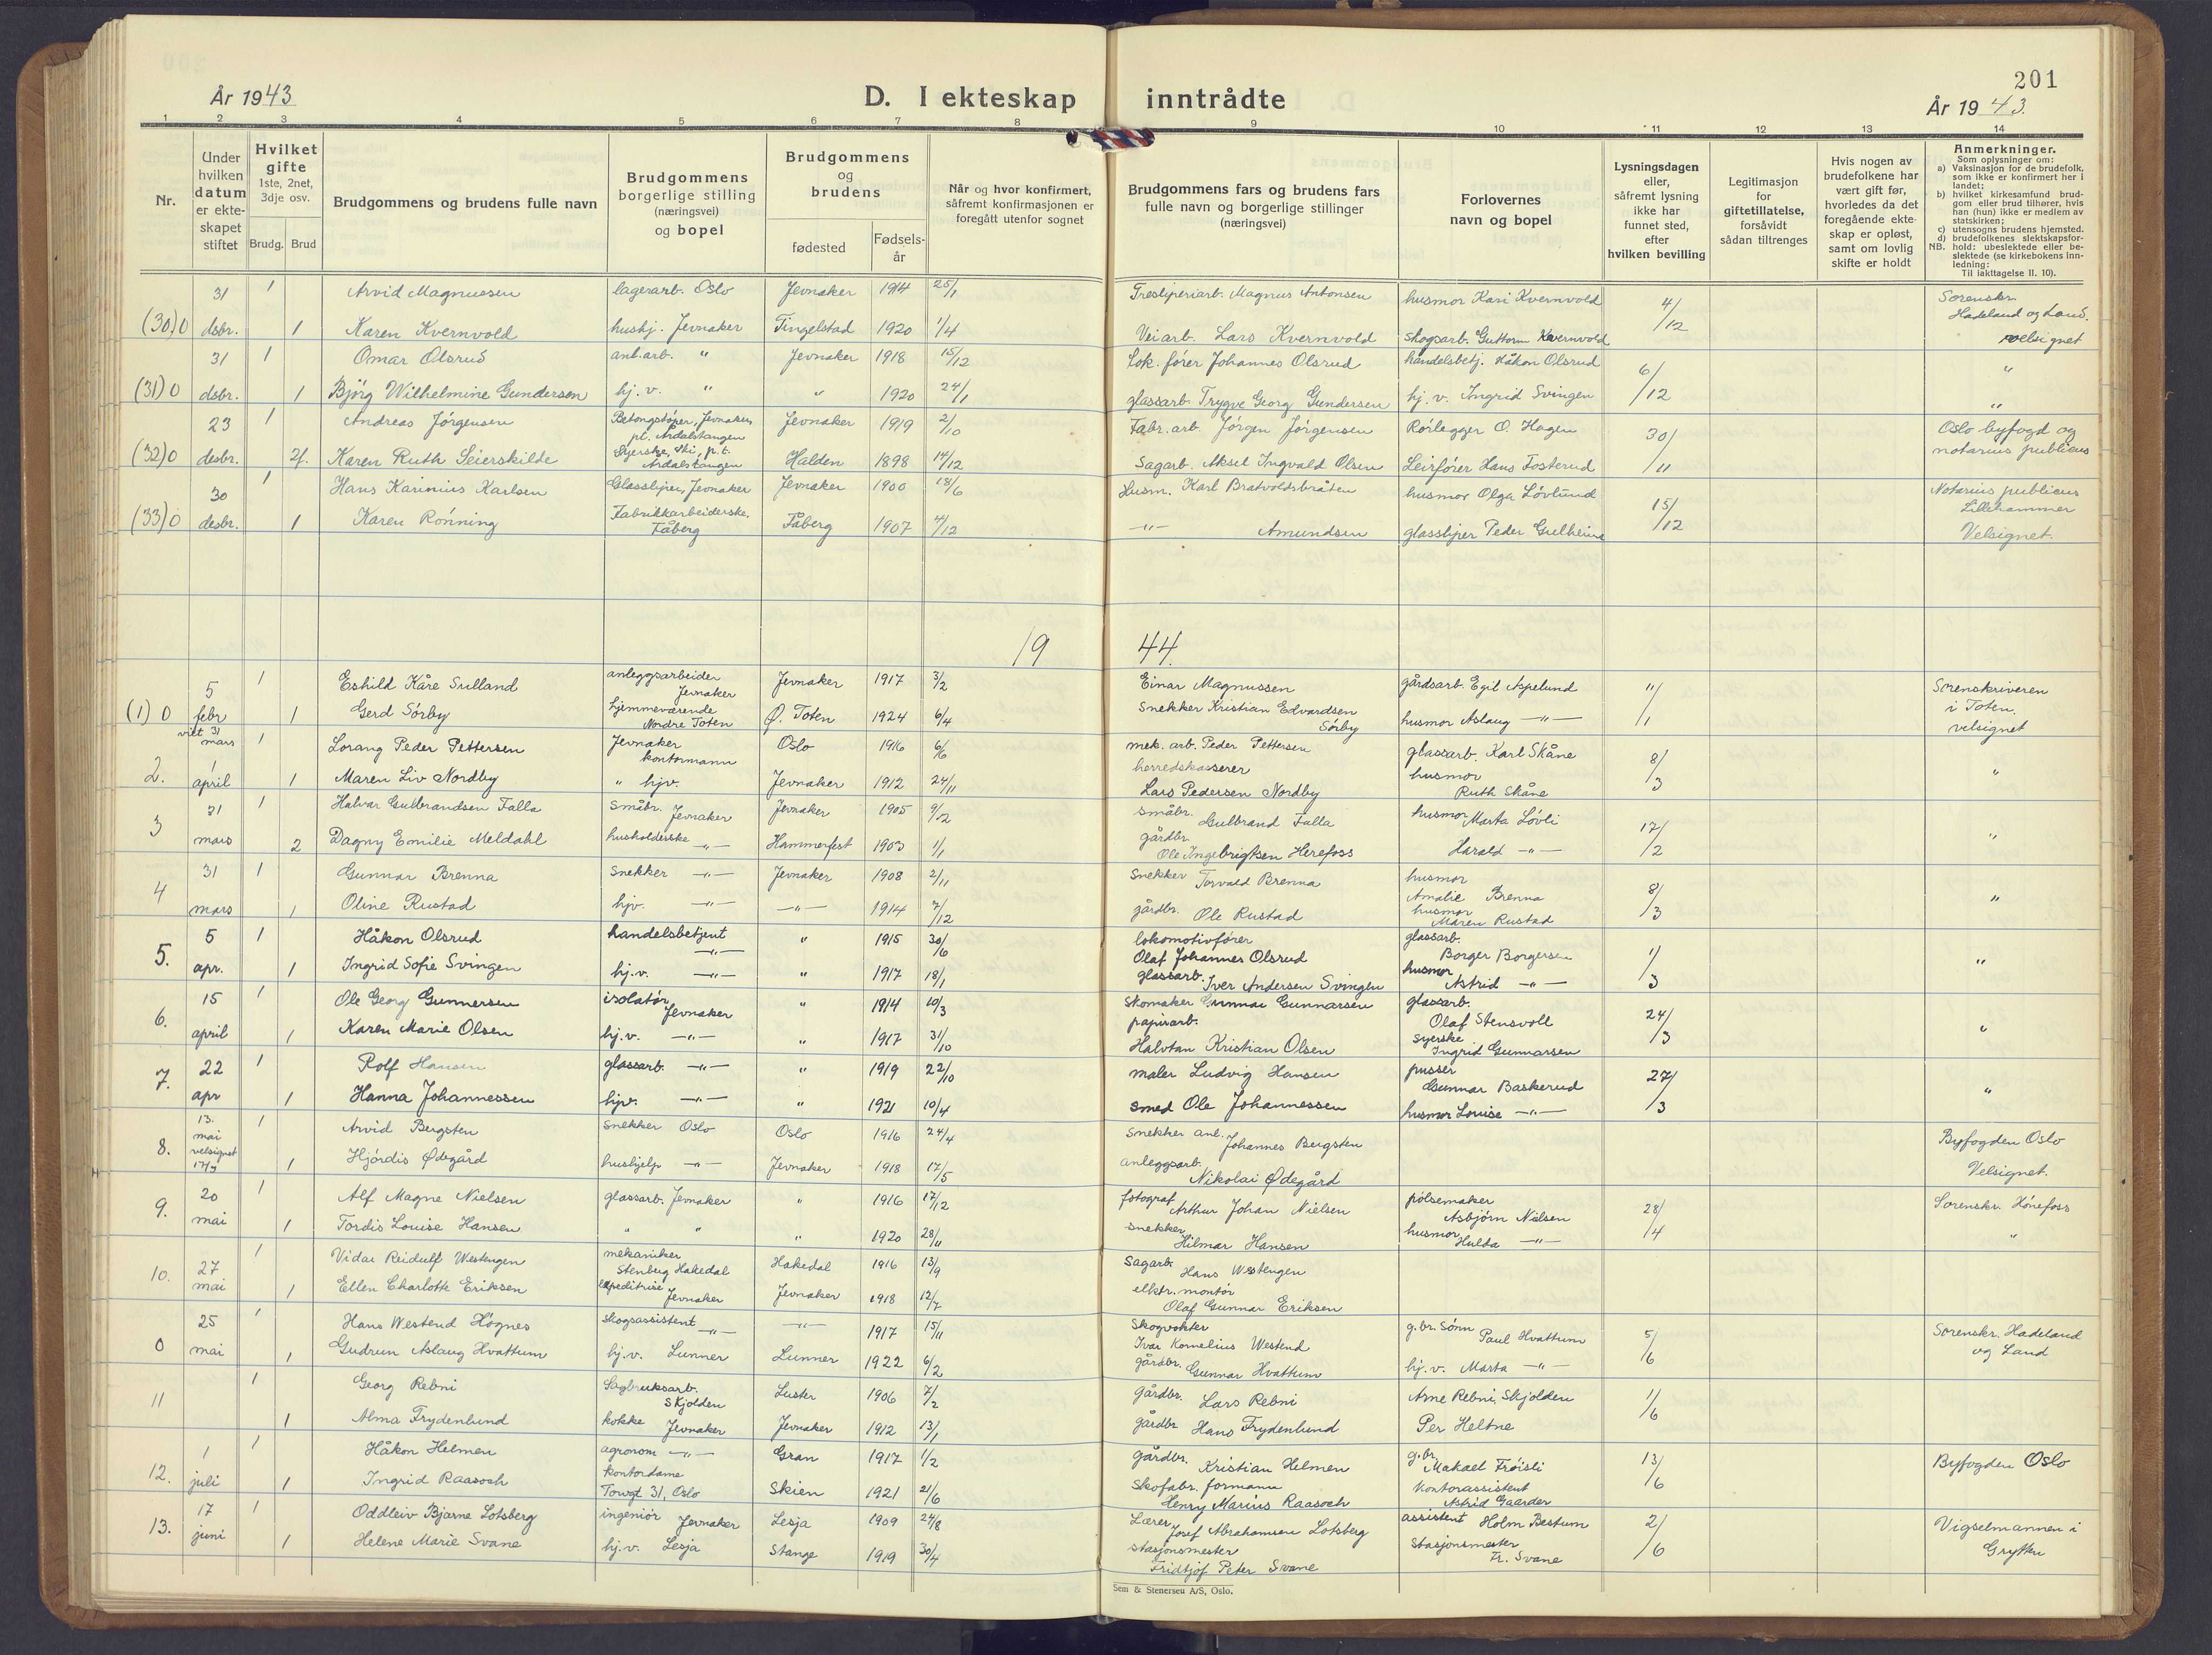 201
År 1943
D. I ekteskap inntrådte
År 1943.
1 2 3 4 5 6 7 8 9 10 11 12 13 14
Nr.
Under hvilken datum er ekte-skapet stiftet
Hvilket gifte
1ste, 2net, 3dje osv.
Brudg. Brud
Brudgommens og brudens fulle navn
Brudgommens borgerlige stilling (næringsvei) og bopel
Brudgommens og brudens
fødested
Fødsels-år
Når og hvor konfirmert, såfremt konfirmasjonen er foregått utenfor sognet
Brudgommens fars og brudens fars fulle navn og borgerlige stillinger (næringsvei)
Forlovernes navn og bopel
Lysningsdagen eller, såfremt lysning ikke har funnet sted, efter hvilken bevilling
Legitimasjon for giftetillatelse, forsåvidt sådan tiltrenges
Hvis nogen av brudefolkene har vært gift før, hvorledes da det foregående ekte-skap er opløst, samt om lovlig skifte er holdt
Anmerkninger.
Som oplysninger om:
a) Vaksinasjon for de brudefolk, som ikke er konfirmert her i landet;
b) hvilket kirkesamfund brud-gom eller brud tilhører, hvis han (hun) ikke er medlem av statskirken;
c) utensogns brudens hjemsted.
d) brudefolkenes slektskapsfor-
NB. hold: ubeslektede eller be-slektede (se kirkebokens inn-ledning:
Til iakttagelse II. 10).
31 1 Arvid Magnussen lagerarb. Oslo Jevnaker 1914 25/1 Tresliperiarb. Magnus Antonsen husmor Kari Kvernvold 4/12 Sorenskr. Hadeland og Land.
(30) 0 dsbr. 1 Karen Kvernvold hushj. Jevnaker Tingelstad 1920 1/4 Veiarb. Lars Kvernvold Skogsarb. Guttorm Kvernvold velsignet
31 1 Omar Olsrud anl.arb. " Jevnaker 1918 15/12 lok. fører Johannes Olsrud handelsbetj. Håkon Olsrud 6/12 "
(31) 0 dsbr. 1 Bjørg Wilhelmine Gundersen hj. v. " " 1920 24/1 glassarb. Trygve Georg Gundersen hj. v. Ingrid Svingen "
23 1 Andreas Jørgensen Betongstøper, Jevnaker, pt. Årdalstangen Jevnaker 1919 2/10 Fabr. arb. Jørgen Jørgensen Rørlegger O. Hagen 30/11 Oslo byfogd og notarius publicus
(32) 0 desbr. 2f. Karen Ruth Seierskilde Syerske, Ski, p.t. Årdalstangen Halden 1898 14/12 Sagarb. Aksel Ingvald Olsen Leirfører Hans Fosterud
30 1 Hans Karinius Karlsen Glassliper, Jevnaker Jevnaker 1900 18/6 Husm. Karl Bratvoldsbråten husmor Olga Løvlund 15/12 Notarius publicus Lillehammer
(33) 0 desbr. 1 Karen Rønning Fabrikkarbeiderske, Fåberg Fåberg 1907 4/12 -"- Amundsen glassliper Peder Gulheim Velsignet.
1944.
5 1 Eskild Kåre Sulland anleggsarbeider Jevnaker Jevnaker 1917 3/2 Einar Magnussen gårdsarb. Egil Aspelund 11/1 Sorenskriveren i Toten.
(1) 0 febr 1 Gerd Sørby hjemmeværende Nordre Toten Ø. Toten 1924 6/4 Snekker Kristian Edvardsen Sørby husmor Aslaug -"- velsignet
vilt 31 mars 1 Lorang Peder Pettersen Jevnaker kontormann Oslo 1916 6/6 mek. arb. Peder Pettersen glassarb. Karl Skåne 8/3 "
2. 1 april 1 Maren Liv Nordby " hjv. Jevnaker 1912 24/11 herredskasserer Lars Pedersen Nordby husmor Ruth Skåne
31 1 Halvar Gulbrandsen Falla småbr. Jevnaker Jevnaker 1905 9/12 småbr. Gulbrand Falla husmor Marta Løvli 17/2 "
3 mars 2 Dagny Emilie Meldahl husholderske -"- Hammerfest 1903 1/1 gårdbr. Ole Ingebrigtsen Herefoss Harald -"-
31 1 Gunnar Brenna snekker -"- Jevnaker 1908 2/11 Snekker Torvald Brenna husmor Amalie Brenna 8/3 "
4 mars 1 Oline Rustad hjv. -"- -"- 1914 7/12 gårdbr. Ole Rustad husmor Maren Rustad
5 1 Håkon Olsrud handelsbetjent -"- " 1915 30/6 lokomotivfører Olaf Johannes Olsrud glassarb. Borger Borgersen 1/3 "
5. apr. 1 Ingrid Sofie Svingen hj.v. -"- " 1917 18/1 glassarb. Iver Andersen Svingen husmor Astrid -"-
15 1 Ole Georg Gunnersen isolatør Jevnaker " 1914 10/3 Skomaker Gunnar Gunnarsen glassarb. Olaf Stensvoll 24/3 "
6. april 1 Karen Marie Olsen hj.v. -"- " 1917 31/10 papirarb. Halvtan Kristian Olsen syerske Ingrid Gunnarsen
22 1 Rolf Hansen glassarb. -"- " 1919 22/10 maler Ludvig Hansen pusser Gunnar Baskerud 27/3 "
7. apr 1 Hanna Johannessen hjv. -"- " 1921 10/4 smed Ole Johannessen husmor Louise -"-
13. mai 1 Arvid Bergsten snekker Oslo Oslo 1916 24/4 Snekker anl. Johannes Bergsten Byfogden Oslo
8. velsignet 1 Hjørdis Ødegård hushjelp -"- Jevnaker 1918 17/5 anleggsarb. Nikolai Ødegård Velsignet.
20 1 Alf Magne Nielsen glassarb. Jevnaker " 1916 17/12 fotograf Arthur Johan Nielsen pølsemaker Asbjørn Nielsen 28/4 Sorenskr. Hønefoss
9. mai 1 Tordis Louise Hansen " " " 1920 28/11 snekker Hilmar Hansen husmor Hulda -"- "
27 1 Vidar Reidulf Westengen mekaniker Stenberg Hakedal Hakedal 1916 13/9 Sagarb. Hans Westengen
10. mai 1 Ellen Charlotte Eriksen expeditrise Jevnaker Jevnaker 1918 12/7 elktr. montør Olaf Gunnar Eriksen
25 1 Hans Westend Høgnes skogsassistent -"- -"- 1917 15/11 Skogvokter Ivar Kornelius Westend g.br. sønn Paul Hvattum 5/6 Sorenskr. Hadeland og Land
0 mai 1 Gudrun Aslaug Hvattum hj.v. Lunner Lunner 1922 6/2 gårdbr. Gunnar Hvattum hj. v. Marta -"-
1 Georg Rebni Sagbruksarb. Skjolden Luster 1906 7/2 gårdbr. Lars Rebni Arne Rebni, Skjolden 1/6
11 1 Alma Frydenlund kokke Jevnaker Jevnaker 1912 13/1 gårdbr Hans Frydenlund Per Heltne
1 1 Håkon Helmen agronom -"- Gran 1917 1/2 gårdbr. Kristian Helmen g.br. Makael Frøisli 13/6 Byfogden Oslo
12. juli 1 Ingrid Raasoch kontordame Towgt 31, Oslo Skien 1921 21/6 Skofabr. formann Henry Marius Raasoch kontorassistent Astrid Gaarder
17 1 Oddleiv Bjarne Lotsberg ingeniør Jevnaker Lesja 1909 24/8 Lærer Josef Abrahamsen Lotsberg assistent Holm Bestum 2/6 Vigselmannen i Grytten
13. juni 1 Helene Marie Svane hj.v. Lesja Stange 1919 30/4 stasjonsmester Fridtjof Peter Svane Stasjonsmester Fr. Svane
Sem & Stenersen A/S, Oslo.